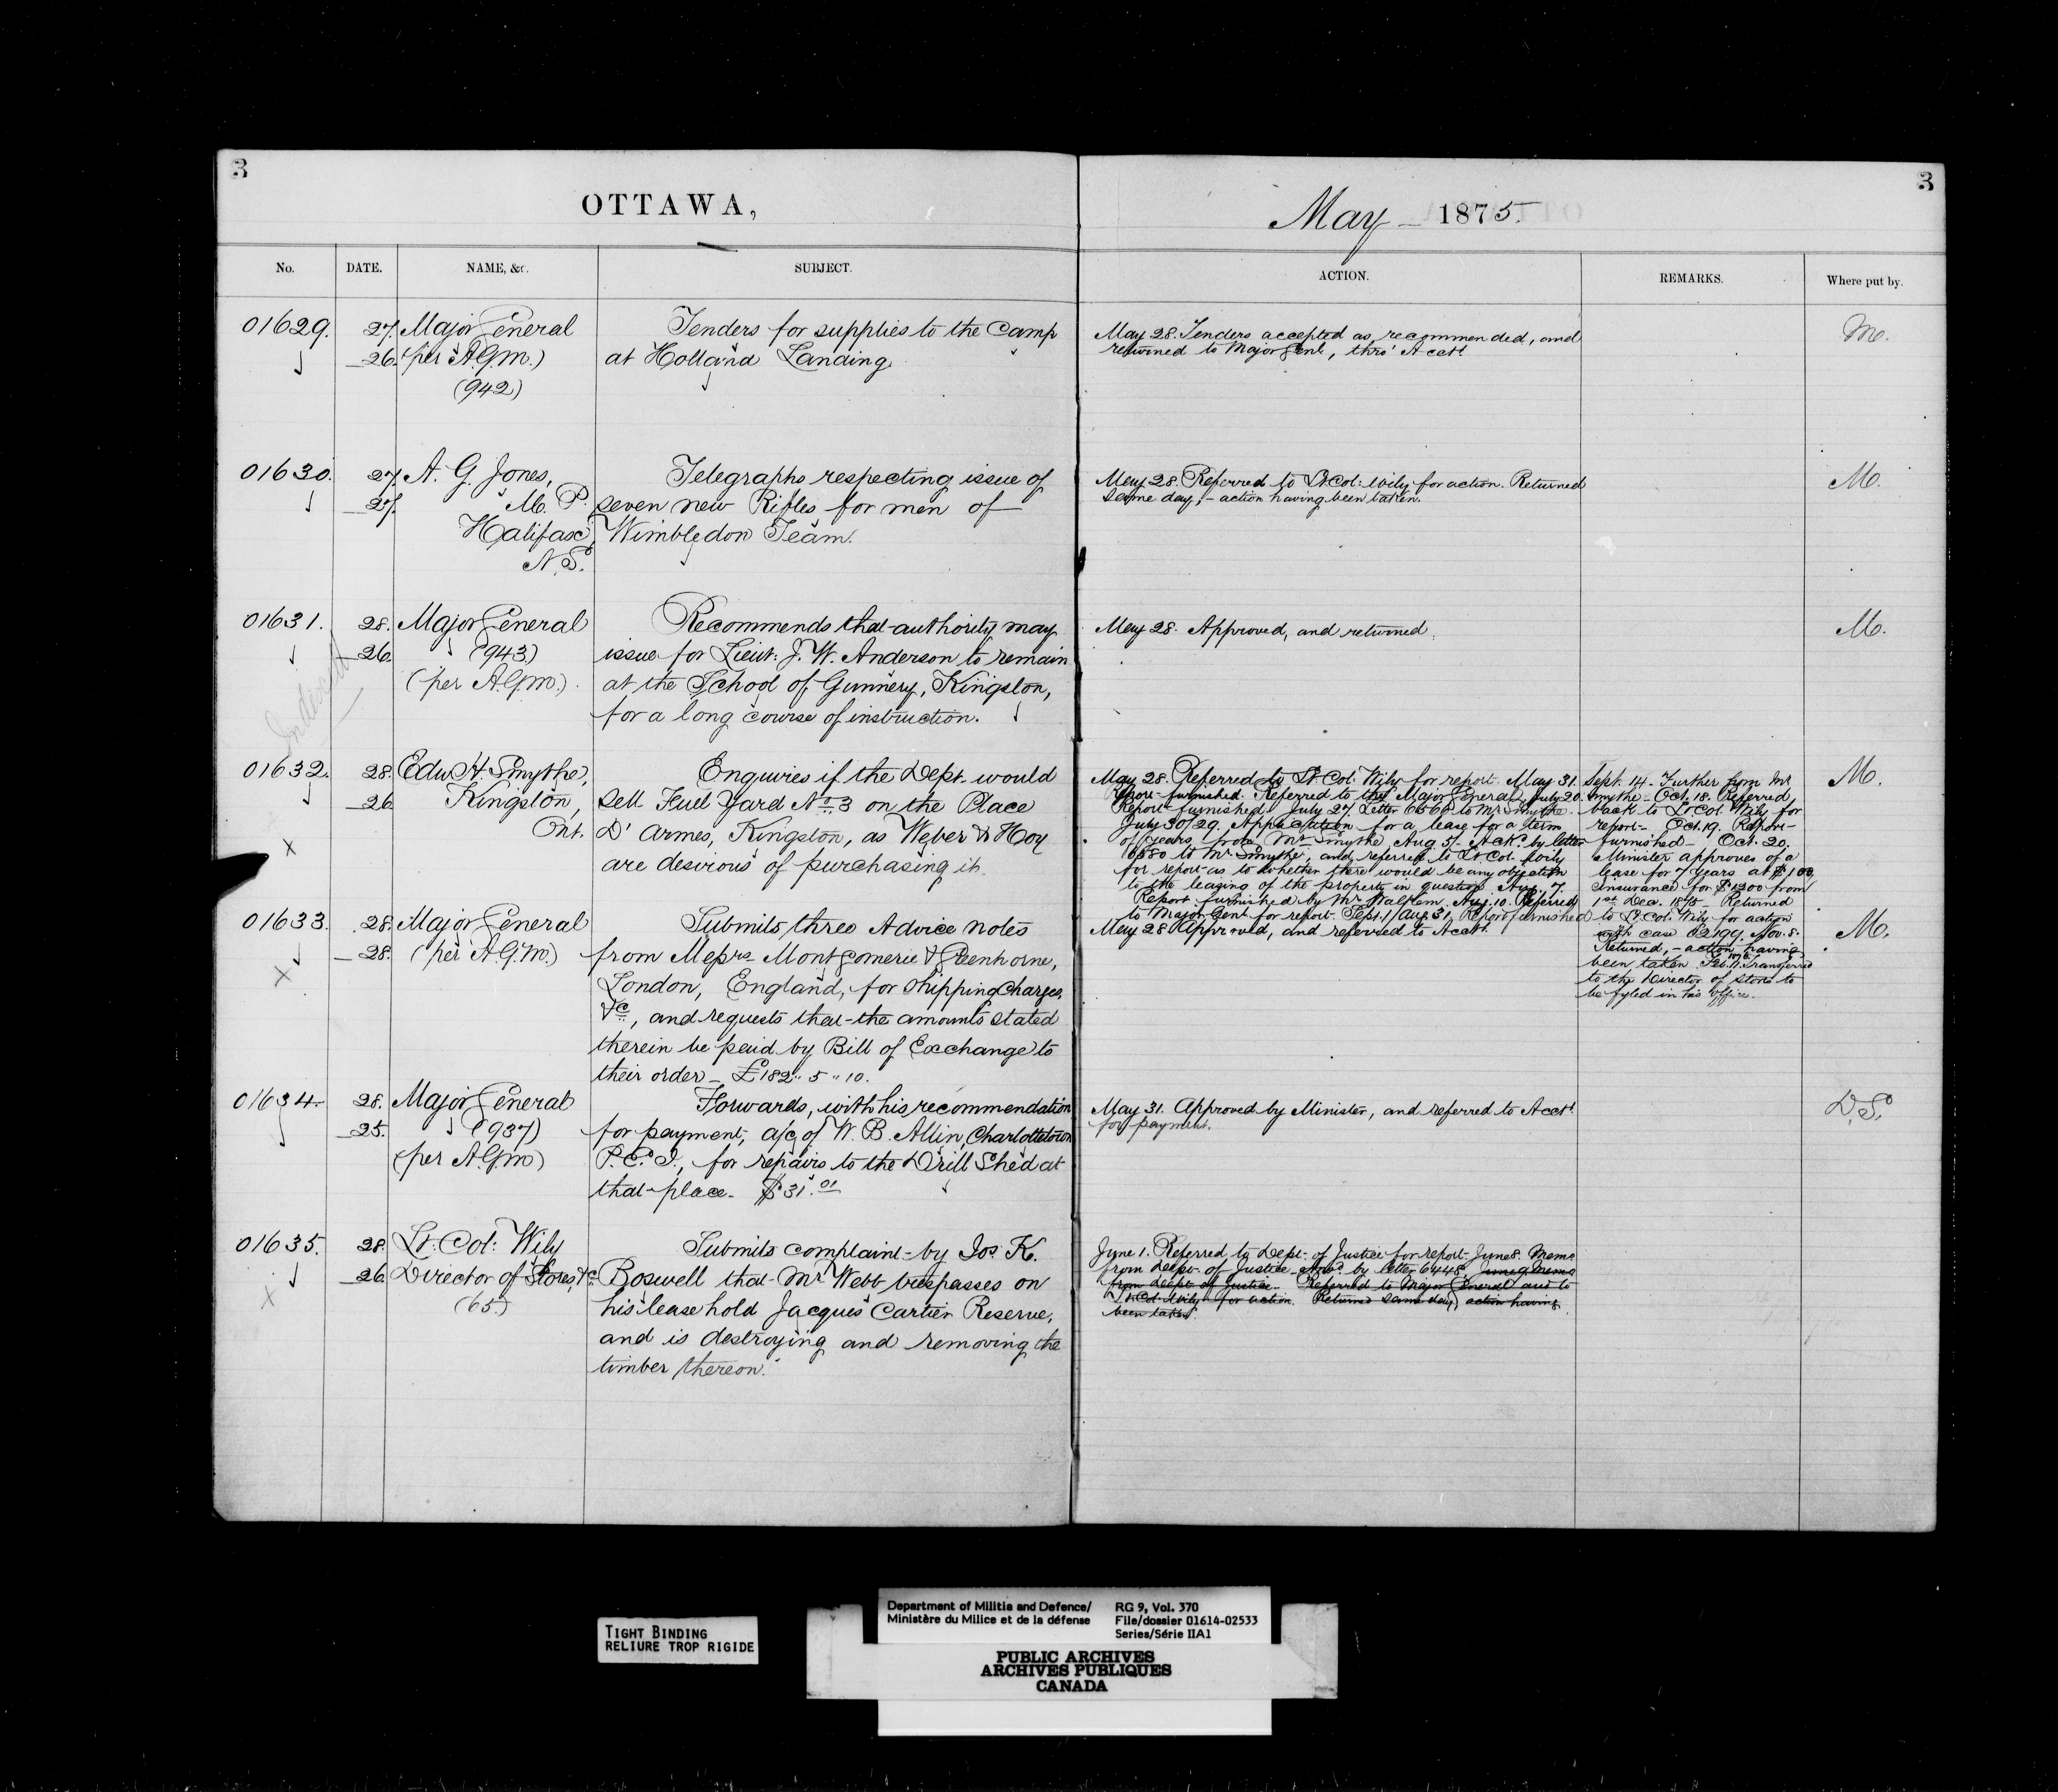 3
OTTAWA,
No.
DATE.
NAME, &c.
SUBJECT.
01629.
27.
26.
Major General
(per A.G.M.)
(942)
Tenders for supplies to the Camp
at Holland Landing.
01630.
27.
27.
A. G. Jones,
M. P.
Halifax,
N.S.
Telegraphs respecting issue of
seven new Rifles for men of
Wimbledon Team.
01631.
28.
26.
Major General
(943.)
(per A.G.M.)
Recommends that authority may
issue for Lieut: J. W. Anderson to remain
at the School of Gunnery, Kingston,
for a long course of instruction.
01632.
28.
26
Edw. H. Smythe,
Kingston,
Ont.
Enquiries if the Dept. would
sell Fuel Yard No. 3 on the Place
D'Armes, Kingston, as Weber & Hoy
are desirous of purchasing it.
01633.
28.
28.
Major General
(per A.G.M.)
Submits three Advice notes
from Messrs Montgomerie & Greenhorne,
London, England, for shipping Charges,
&c., and requests that the amounts stated
therein be paid by Bill of Exchange to
their order – £182 " 5 " 10.
01634.
28.
25.
Major General
(937)
(per A.G.M.)
Forwards, with his recommendation
for payment, a/c of W. B. Allin, Charlottetown
P.E.I., for repairs to the Drill Shed at
that place. $31.01
01635.
28.
26.
Lt: Col: Wily
Director of Stores, &c
(65)
Submits complaint by Jos. K.
Boswell that Mr Webb trespasses on
his leasehold Jacques Cartier Reserve,
and is destroying and removing the
timber thereon.
3
May – 1875.
ACTION.
REMARKS.
Where put by.
May 28. Tenders accepted as recommended, and
returned to Major Genl, thro' Acctt
M.
May 28. Referred to Lt Col: Wily for action. Returned
same day, – action having been taken.
M.
May 28. Approved, and returned.
M.
May 28. Referred to Lt. Col. Wily for report. May 31.
Report furnished. Referred to the Major General. July 20.
Report furnished. July 27. Letter 6566 to Mr Smythe.
July 30/29. Application for a lease for a term
of years from Mr Smythe Aug 5. Ackd by letter
6580 to Mr Smythe, and referred to Lt Col. Wily
for report as to whether there would be any objection
to the leasing of the property in question Aug. 7.
Report furnished by Mr Walkem. Aug. 10. Referred
to Major Genl for report. Sept. 1/Aug 31. Report furnished
Sept. 14. Further from Mr
Smythe – Oct. 18. Referred
back to Lt. Col. Wily for
report – Oct. 19. Report
furnished – Oct. 20.
Minister approves of a
lease for 7 years at $100,
insurance for $1200 from
1st Dec. 1875 – Returned
to Lt. Col. Wily for action
with case 02199. Nov. 8.
Returned, – action having
been taken. Transferred
to the Director of Stores to
be fyled in his office.
M.
May 28 Approved, and referred to Acctt.
M.
May 31. Approved by Minister, and referred to Acctt
for payment.
D.S.
June 1. Referred to Dept. of Justice for report. June 8. Memo
from Dept. of Justice – Ansd. by letter 6448. June 9. Memo
from Dept. of Justice. Referred to Major General and to
Lt Col Wily for action. Returned same day, action having
been taken.
TIGHT BINDING
RELIURE TROP RIGIDE
Department of Militia and Defence/
Ministère du Milice et de la défense
RG 9, Vol. 370
File/dossier 01614-02533
Series/Série IIA1
PUBLIC ARCHIVES
ARCHIVES PUBLIQUES
CANADA